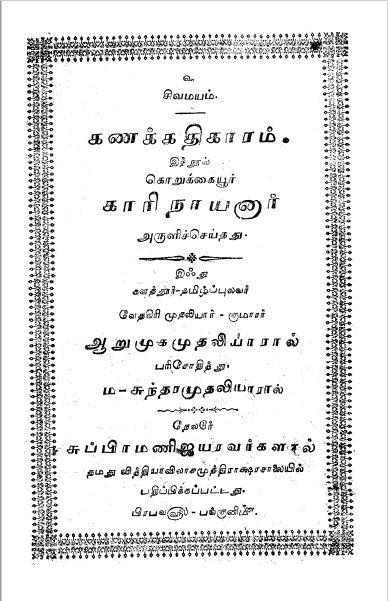 உ
சிவமயம்.
கணக்கதிகாரம்.
இந்நூல்
கொறுக்கையூர்
காரிநாயனார்
அருளிச்செய்தது.
இஃது
களத்தூர்-தமிழ்ப்புலவர்
வேதகிரி முதலியார் - குமாரர்
ஆறுமுகமுதலியாரால்
பரிசோதித்து,
ம-சுந்தரமுதலியாரால்
தேலரே
சுப்பிரமணிஐயரவர்களால்
தமது வித்தியாவிலாசமுத்திராக்ஷரசாலையில்
பதிப்பிக்கப்பட்டது.
பிரபவ௵ - பங்குனி௴.